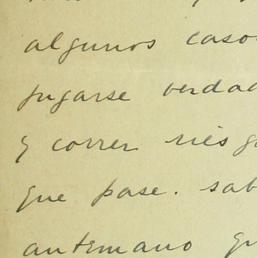 algunos caso
jugarse verdad
y correr riesg
que pase. sab
antemano qu